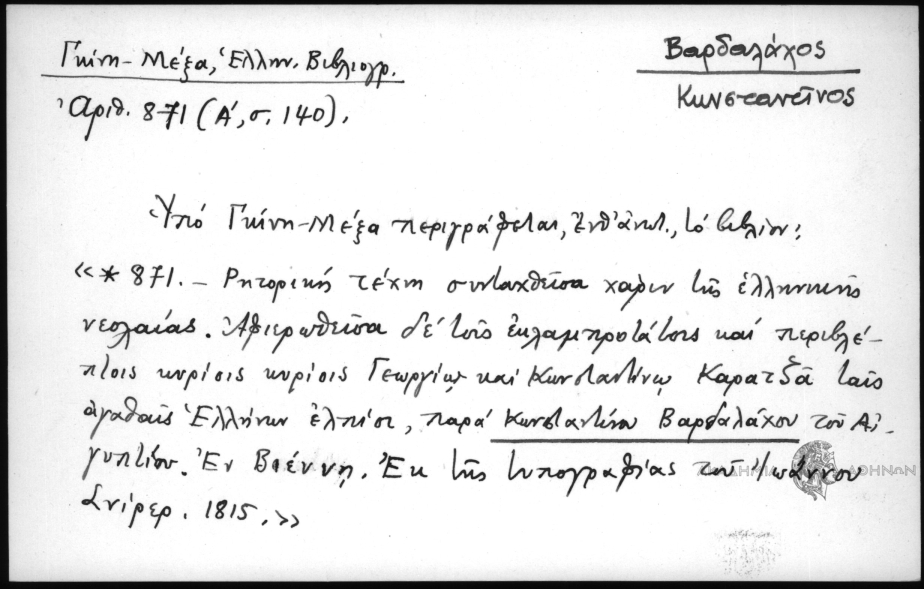 Γκίνη-Μέξα, Ἑλλην. Βιβλιογρ.
Ἀριθ. 871 (Α´, σ. 140).
Βαρδαλάχος
Κωνσταντῖνος
Ὑπό Γκίνη-Μέξα περιγράφεται, ἔνθ' ἀνωτ., τό βιβλίον:
«*871. – Ρητορική τέχνη συνταχθεῖσα χάριν τῆς ἑλληνικῆς
νεολαίας. Ἀφιερωθεῖσα δέ τοῖς ἐκλαμπροτάτοις καί περιβλέ-
πτοις κυρίοις κυρίοις Γεωργίῳ καί Κωνσταντίνῳ Καρατζᾶ ταῖς
ἀγαθαῖς Ἑλλήνων ἐλπίσι, παρά Κωνσταντίνου Βαρδαλάχου τοῦ Αἰ-
γυπτίου. Ἐν Βιέννῃ. Ἐκ τῆς τυπογραφίας τοῦ Ἰωάννου
Σνίρερ. 1815.»
ΑΘΗΝΩΝ